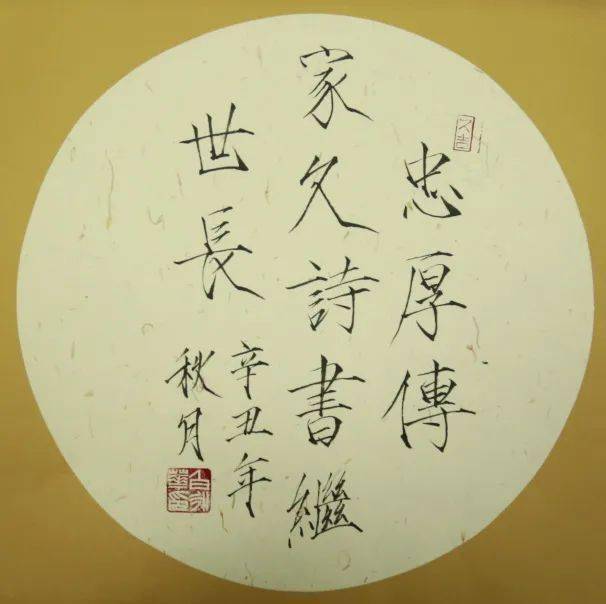 忠厚傳
家久詩書繼
世長
辛丑年
秋月